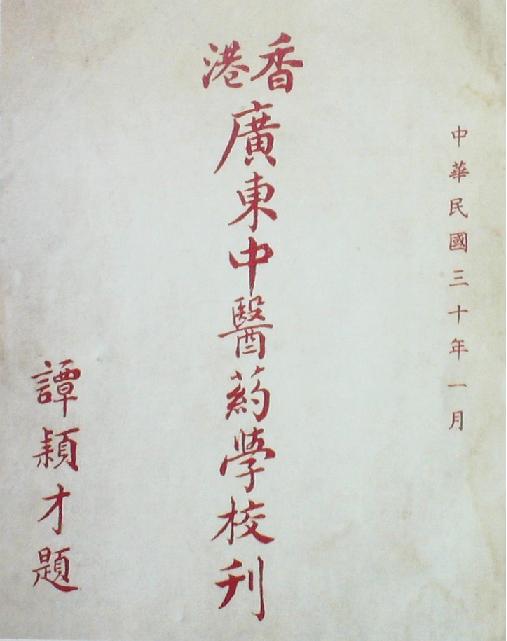 中華民國三十年一月
香港
廣東中醫葯學校刊
譚穎才題